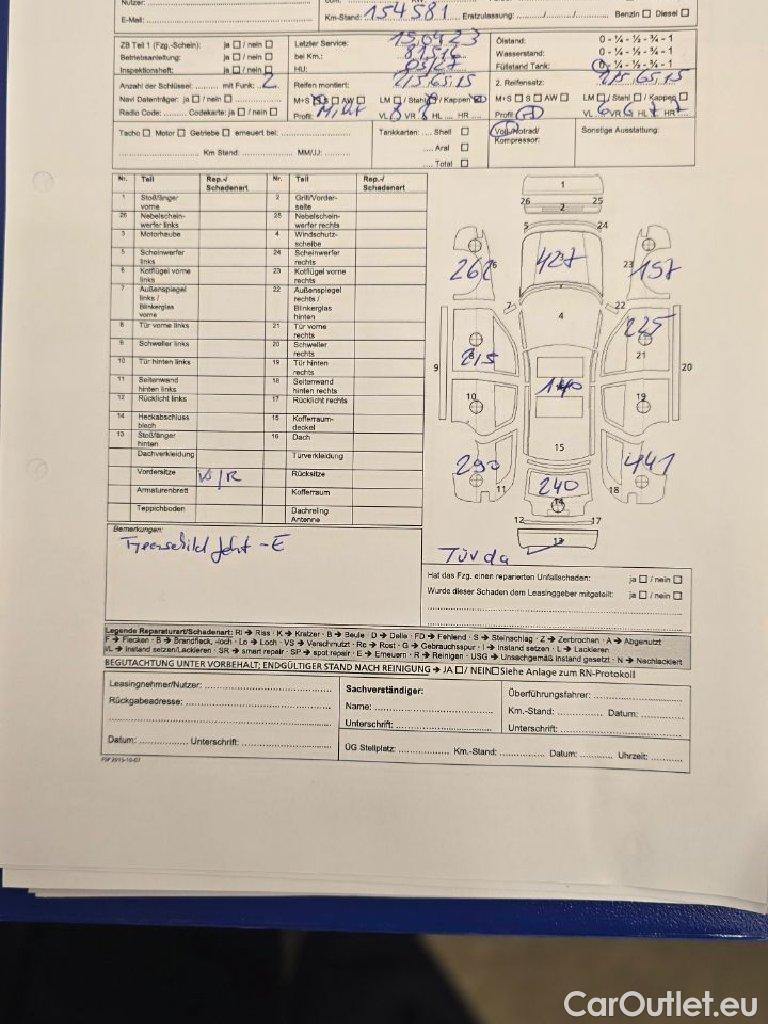 Nutzer:
E-Mail:
Km-Stand: 154581 Erstzulassung: / / Benzin Diesel
ZB Teil 1 (Fzg.-Schein): ja / nein
Betriebsanleitung: ja / nein
Inspektionsheft: ja / nein
Letzter Service: 15.04.23
bei Km.:
HU: 03/27
Ölstand: 0 - ¼ - ½ - ¾ - 1
Wasserstand: 0 - ¼ - ½ - ¾ - 1
Füllstand Tank: 0 - ¼ - ½ - ¾ - 1
Anzahl der Schlüssel: mit Funk: 2
Navi Datenträger: ja / nein
Radio Code: Codekarte: ja / nein
Reifen montiert: 215 65 15
M+S S AW LM / Stahl / Kappen
Profil: VL 8 VR 8 HL HR
2. Reifensatz: 215 65 15
M+S S AW LM / Stahl / Kappen
Profil: VL 6 VR 6 HL 7 HR 7
Tacho Motor Getriebe erneuert bei:
Km Stand: MM/JJ:
Tankkarten: Shell
Aral
Total
Voll-/Notrad/
Kompressor:
Sonstige Ausstattung:
Nr. Teil Rep.-/ Schadenart Nr. Teil Rep.-/ Schadenart
1 Stoßfänger vorne 2 Grill/Vorder-seite
26 Nebelschein-werfer links 25 Nebelschein-werfer rechts
3 Motorhaube 4 Windschutz-scheibe
5 Scheinwerfer links 24 Scheinwerfer rechts
6 Kotflügel vorne links 23 Kotflügel vorne rechts
7 Außenspiegel links / Blinkerglas vorne 22 Außenspiegel rechts / Blinkerglas hinten
8 Tür vorne links 21 Tür vorne rechts
9 Schweller links 20 Schweller rechts
10 Tür hinten links 19 Tür hinten rechts
11 Seitenwand hinten links 18 Seitenwand hinten rechts
12 Rücklicht links 17 Rücklicht rechts
14 Heckabschluss blech 15 Kofferraum-deckel
13 Stoßfänger hinten 16 Dach
Dachverkleidung Türverkleidung
Vordersitze VS/R Rücksitze
Armaturenbrett Kofferraum
Teppichboden Dachreling Antenne
1
26 25
2
5 24
262 427 23 157
3
7 22
4
225
215 21
9 20
140
10 19
15
290 441
11 240 18
14
12 17
13
Bemerkungen:
Typenschild fehlt - E
Tüv da
Hat das Fzg. einen reparierten Unfallschaden: ja / nein
Wurde dieser Schaden dem Leasinggeber mitgeteilt: ja / nein
Legende Reparaturart/Schadenart: RI → Riss · K → Kratzer · B → Beule · D → Delle · FD → Fehlend · S → Steinschlag · Z → Zerbrochen · A → Abgenutzt
F → Flecken · B → Brandfleck, -loch · Lo → Loch · VS → Verschmutzt · Ro → Rost · G → Gebrauchsspur · I → Instand setzen · L → Lackieren
I/L → Instand setzen/Lackieren · SR → smart repair · SP → spot repair · E → Erneuern · R → Reinigen · USG → Unsachgemäß instand gesetzt · N → Nachlackiert
BEGUTACHTUNG UNTER VORBEHALT; ENDGÜLTIGER STAND NACH REINIGUNG → JA / NEIN Siehe Anlage zum RN-Protokoll
Leasingnehmer/Nutzer:
Rückgabeadresse:
Datum: Unterschrift:
Sachverständiger:
Name:
Unterschrift:
Überführungsfahrer:
Km.-Stand: Datum:
Unterschrift:
ÜG Stellplatz: Km.-Stand: Datum: Uhrzeit:
CarOutlet.eu